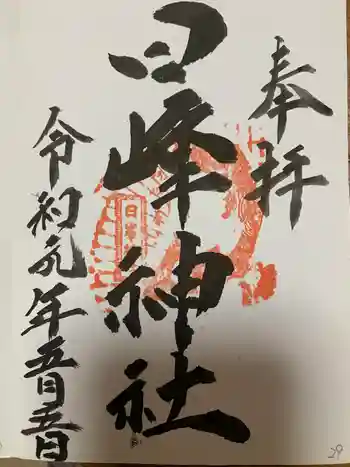 奉拝
日峰神社
令和元年五月五日
29